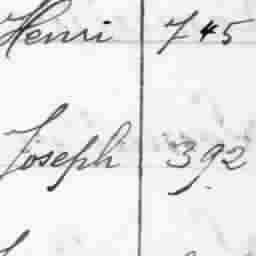 Henri 745
Joseph 392